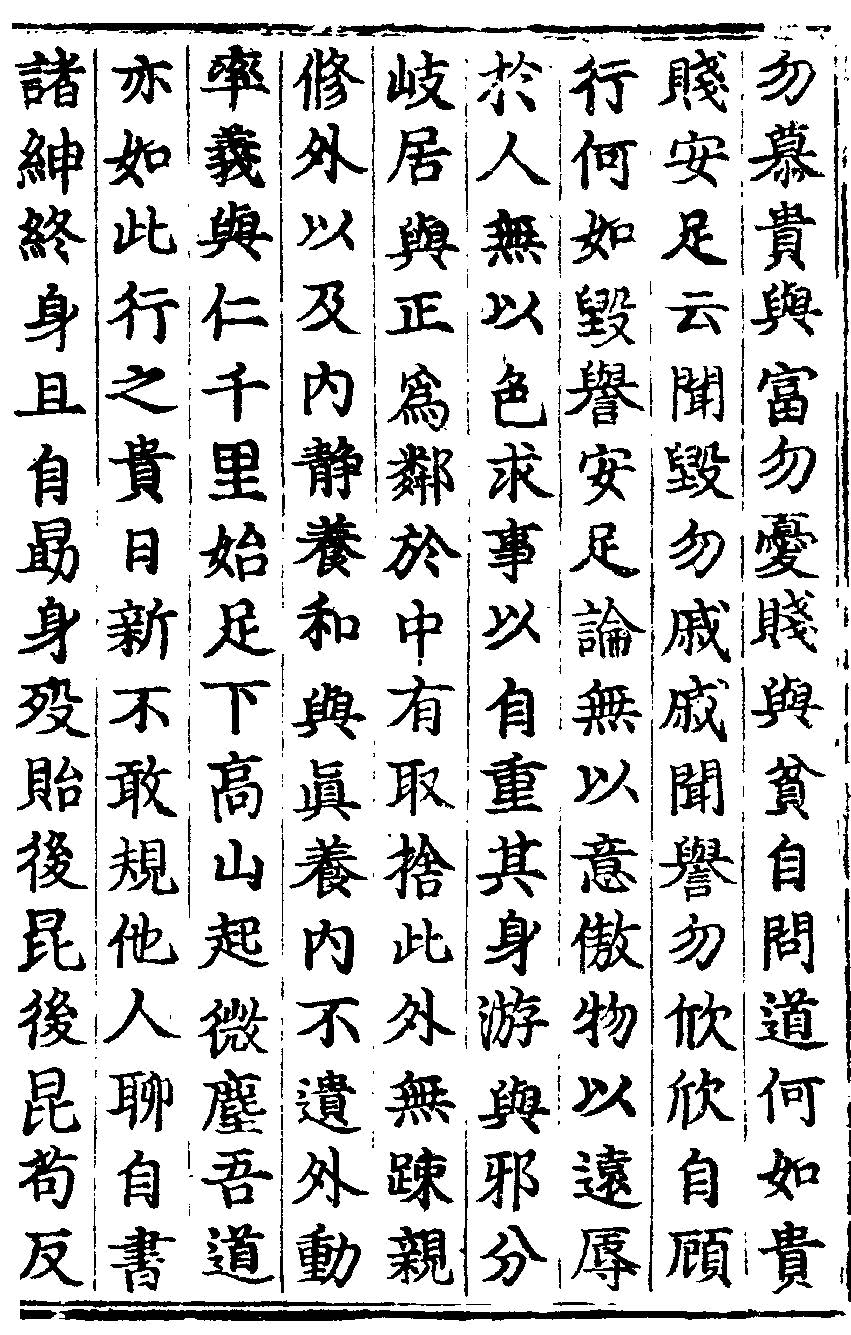 勿慕貴與富勿憂賤與貧自問道何如貴
賤安足云聞毀勿戚戚聞譽勿欣欣自顧
行何如毀譽安足論無以意傲物以遠辱
於人無以色求事以自重其身游與邪分
岐居與正為鄰於中有取捨此外無踈親
修外以及内静養和與眞養内不遺外動
率義與仁千里始足下高山起微塵吾道
亦如此行之貴日新不敢規他人聊自書
諸紳終身且自勗身歿貽後昆後昆苟反